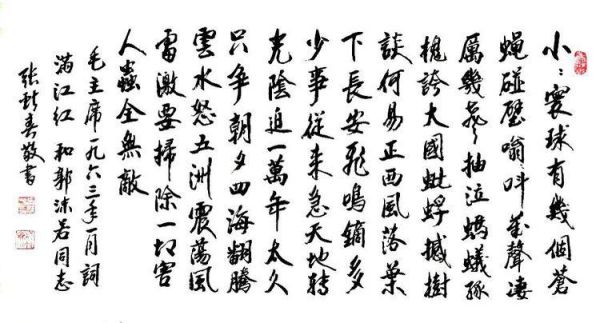 小〻寰球有幾個蒼
蝇碰壁嗡叫幾聲凄
厲幾聲抽泣螞蟻緣
槐誇大國蚍蜉撼樹
談何易正西風落葉
下長安飛鳴鏑多
少事從來急天地轉
光陰迫一萬年太久
只争朝夕四海翻騰
雲水怒五洲震蕩風
雷激要掃除一切害
人蟲全無敵
毛主席一九六三年一月詞
滿江紅 和郭沫若同志
張春敬書